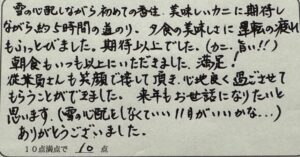 雪の心配しながら初めての香住、美味しいカニに期待し
ながら約5時間の道のり、夕食の美味しさに運転の疲れ
もふっとびました。期待以上でした。(カニ、旨い!!)
朝食もいっも以上にいただきました、満足!
従業員さんも笑顔で接して頂き、心地良く過ごさせて
もらうことができました。来年もお世話になりたいと
思います。(雪の心配をしなくていい11月がいいかな…)
ありがとうございました。
10点満点で 10 点